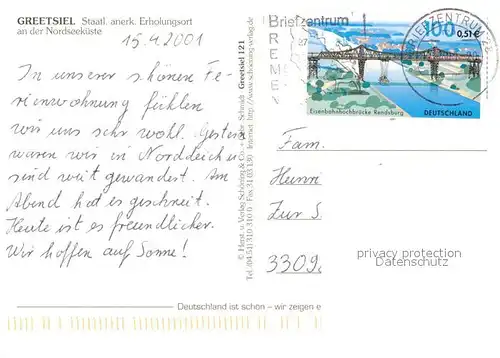 GREETSIEL Staatl. anerk. Erholungsort
an der Nordseeküste
15.4.2001
In unserer schönen Fe-
rienwohnung fühlen
wir uns sehr wohl. Gestern
waren wir in Norddeich u
sind weit gewandert. Am
Abend hat es geschneit.
Heute ist es freundlicher.
Wir hoffen auf Sonne!
© Herst. u. Verlag Schöning & Co. + Gebr. Schmidt Greetsiel 121
Tel. (0451) 310 310 Fax 31 03 130 Internet http://www.schoening-verlag.de
Briefzentrum
BREMEN
27
BRIEFZENTRUM
100
0,51€
Eisenbahnhochbrücke Rendsburg
DEUTSCHLAND
Fam.
Henri
Zur S
3309
privacy protection
Datenschutz
Deutschland ist schön – wir zeigen e